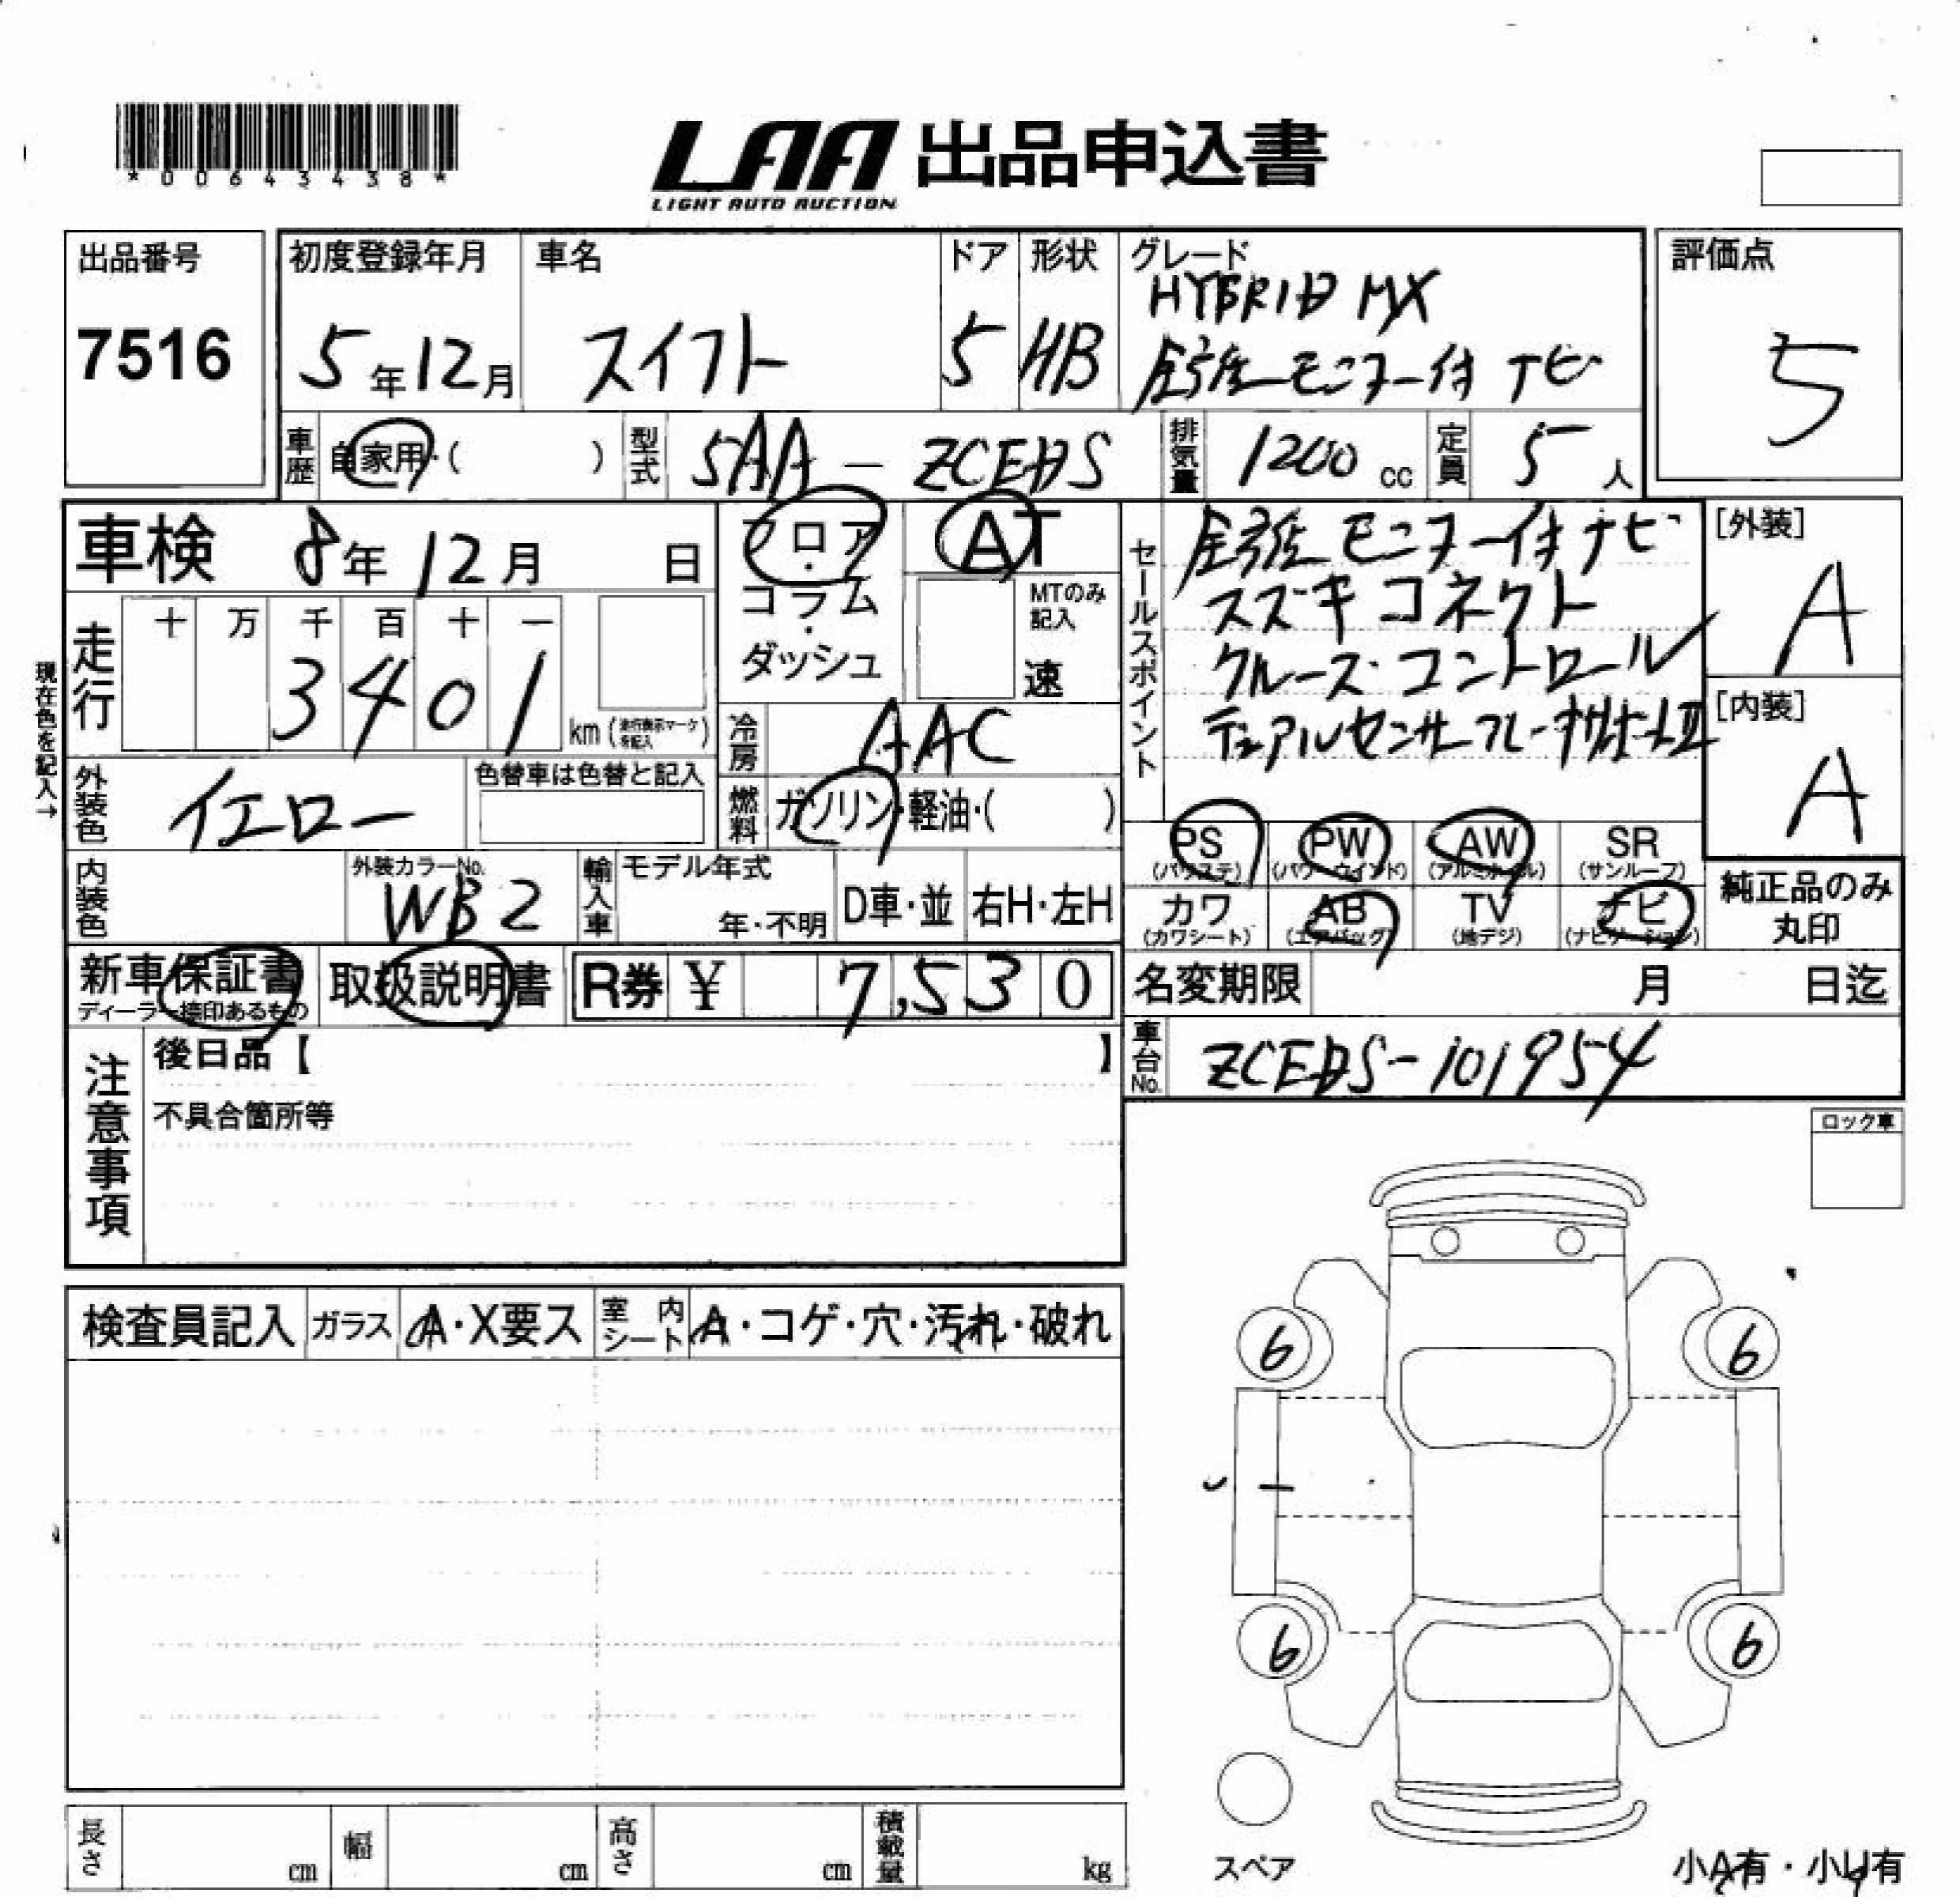 *00643438*
LAA 出品申込書
LIGHT AUTO AUCTION
出品番号
7516
初度登録年月
5年12月
車名
スイフト
ドア
5
形状
HB
グレード
HYBRID MX
全方位モニター付ナビ
評価点
5
車歴
自家用・( )
型式
5AA-ZCEDS
排気量
1200 cc
定員
5人
車検 8年12月 日
フロア・コラム・ダッシュ
AT
MTのみ記入
速
セールスポイント
全方位モニター付ナビ
スズキコネクト
クルーズ・コントロール
デュアルセンサーブレーキサポートⅡ
[外装]
A
[内装]
A
現在色を記入→
走行
十 万 千 百 十 一
3401
km(走行表示マークを記入)
冷房
AAC
外装色
イエロー
色替車は色替と記入
燃料
ガソリン・軽油・( )
PS (パワステ)
PW (パワーウインド)
AW (アルミホイル)
SR (サンルーフ)
カワ (カワシート)
AB (エアバッグ)
TV (地デジ)
ナビ (ナビゲーション)
純正品のみ丸印
内装色
外装カラーNo.
WB2
輸入車
モデル年式
年・不明
D車・並
右H・左H
新車保証書
ディーラー捺印あるもの
取扱説明書
R券 ¥ 7,530
名変期限 月 日迄
車台No.
ZCEDS-101954
注意事項
後日品【 】
不具合箇所等
ロック車
検査員記入
ガラス
A・X要ス
室内シート
A・コゲ・穴・汚れ・破れ
6 6
6 6
スペア
小A有・小U有
長さ cm
幅 cm
高さ cm
積載量 kg